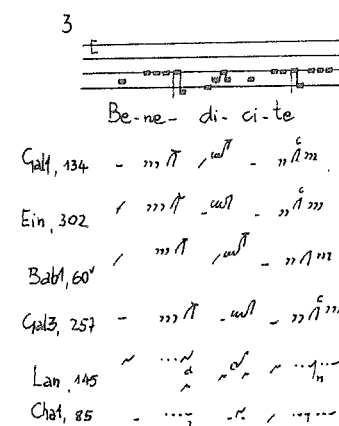 3
Be-ne- di- ci-te
Gal1, 134
c
Ein, 302
c
Bab1, 60v
Gal3, 257
c
Lan, 145
Cha1, 85